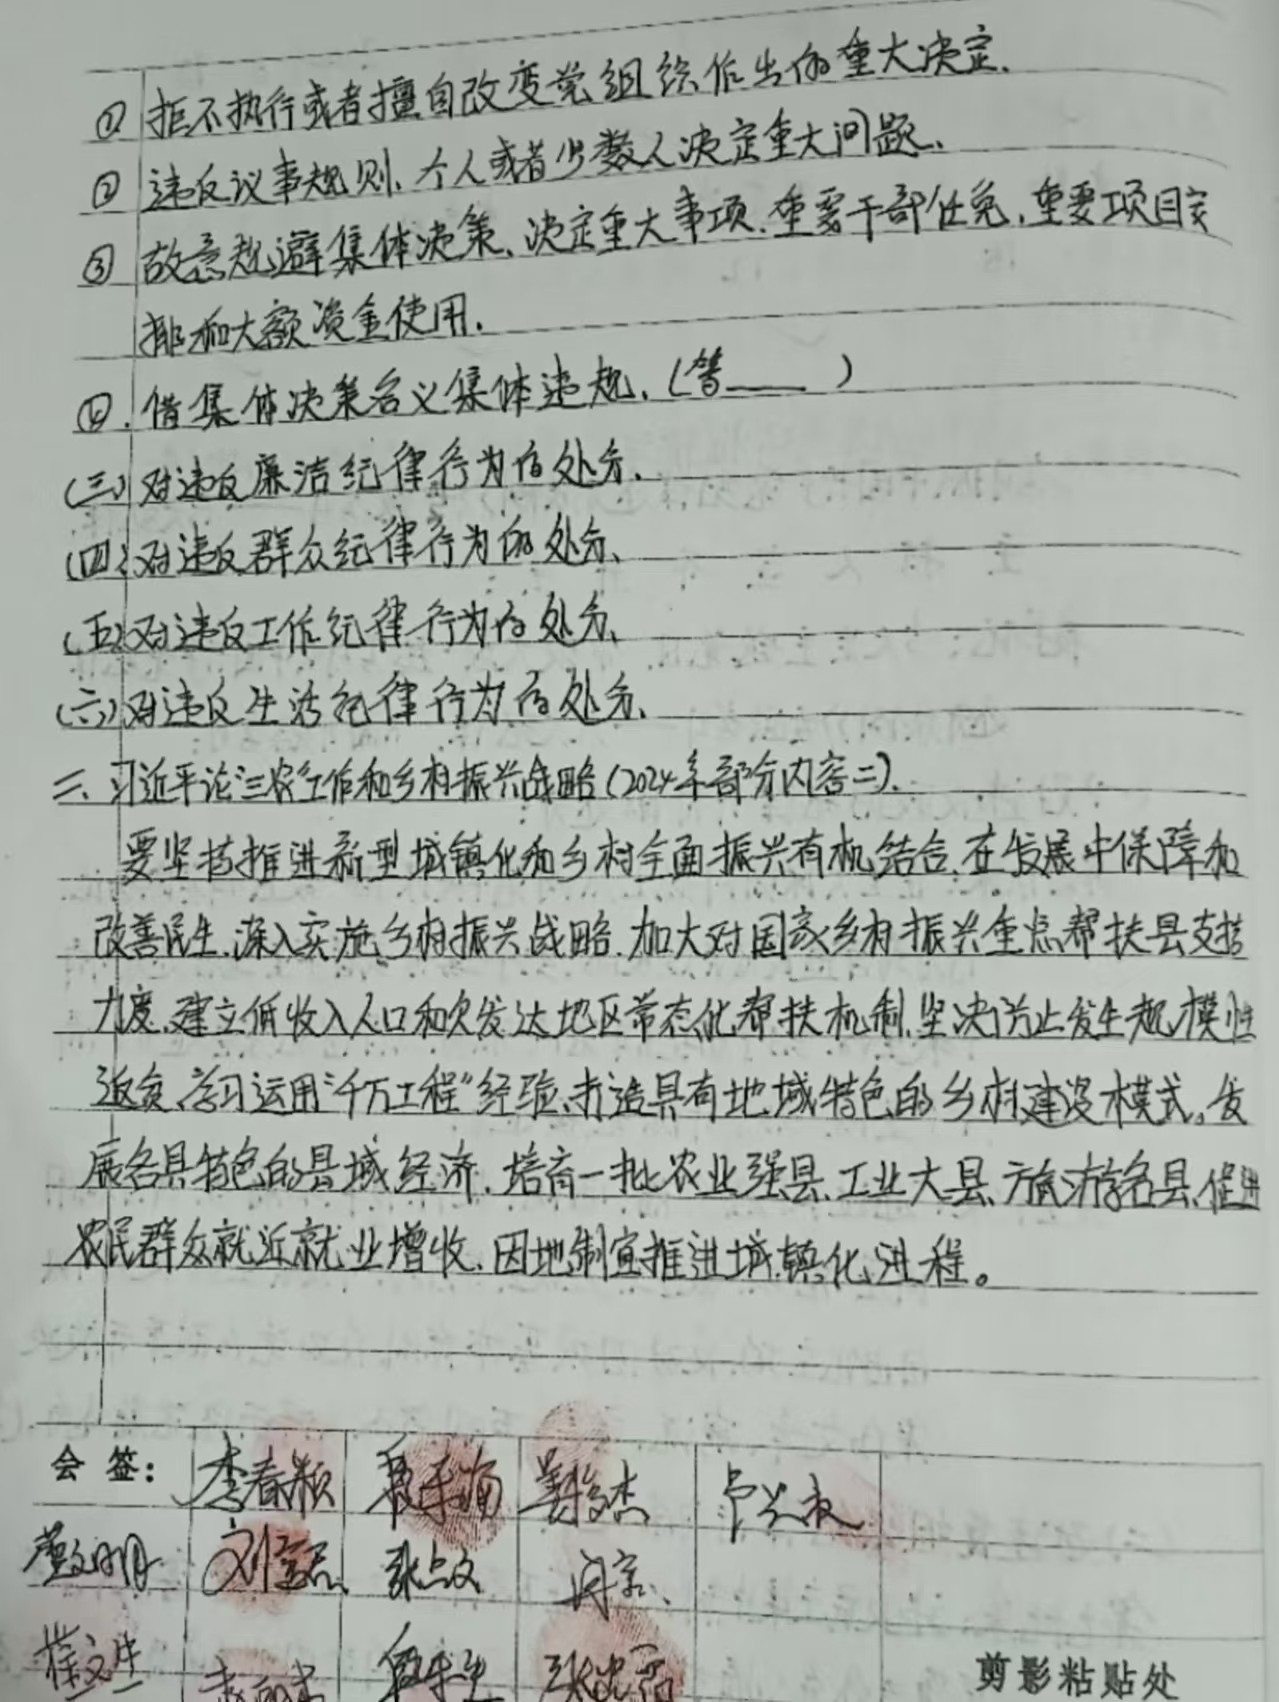 ① 拒不执行或者擅自改变党组织作出的重大决定.
② 违反议事规则、个人或者少数人决定重大问题、
③ 故意规避集体决策、决定重大事项、重要干部任免、重要项目安
排和大额资金使用.
④. 借集体决策名义集体违规、(第____)
(三)对违反廉洁纪律行为的处分、
(四)对违反群众纪律行为的处分、
(五)对违反工作纪律行为的处分、
(六)对违反生活纪律行为的处分、
二、习近平论"三农"工作和乡村振兴战略(2024年部分内容二)、
要坚持推进新型城镇化和乡村全面振兴有机结合、在发展中保障和
改善民生、深入实施乡村振兴战略、加大对国家乡村振兴重点帮扶县支持
力度、建立低收入人口和欠发达地区常态化帮扶机制、坚决防止发生规模性
返贫、学习运用"千万工程"经验、打造具有地域特色的乡村建设模式。发
展各具特色的县域经济、培育一批农业强县、工业大县、旅游名县、促进
农民群众就近就业增收、因地制宜推进城镇化进程。
会 签: 李春颖
剪影粘贴处